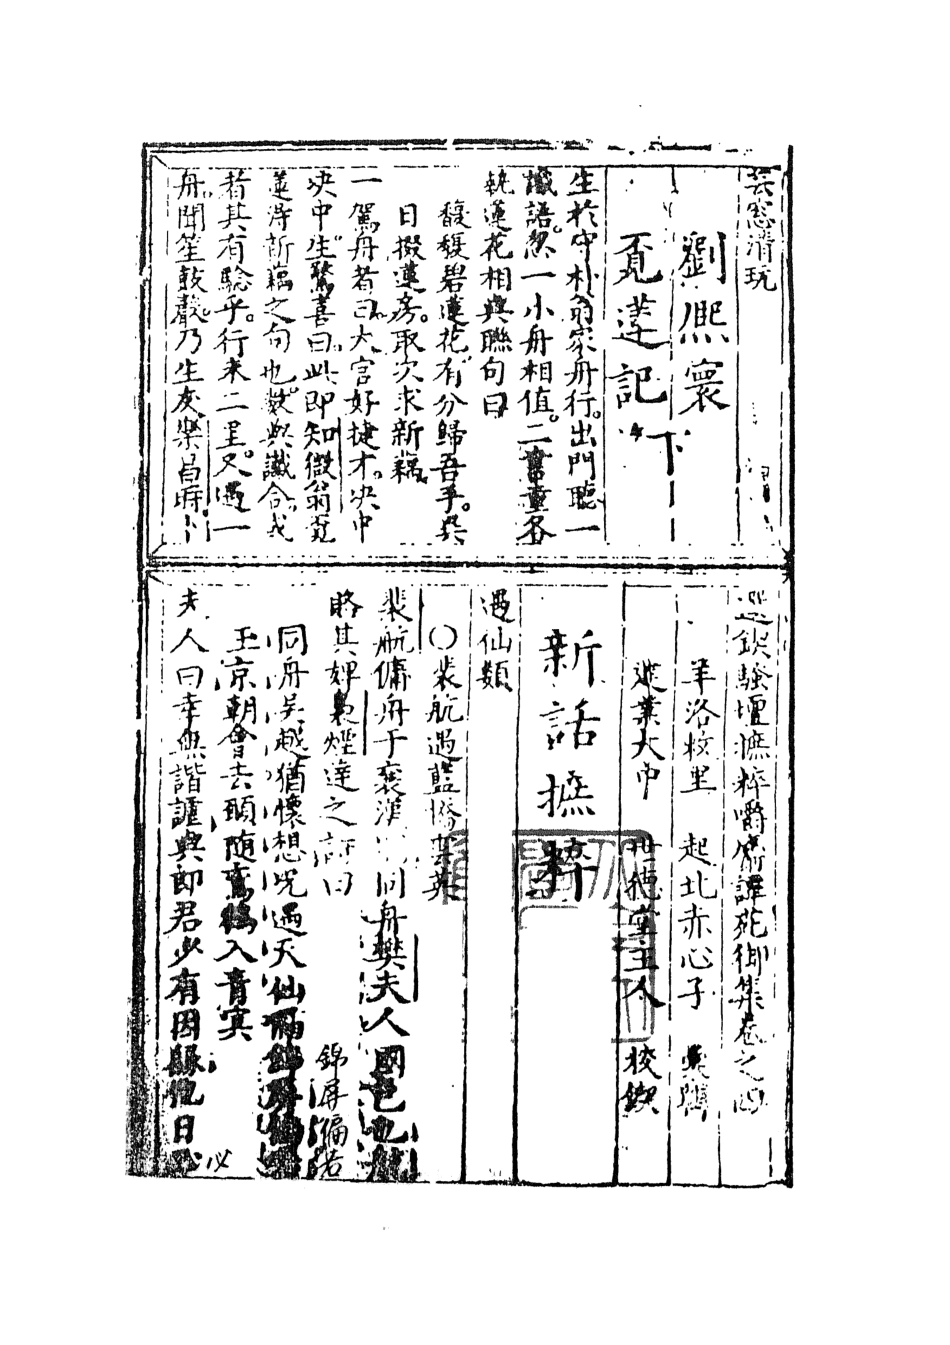 芸窓清玩
劉熙寰
覔蓮記 下
生於守朴翁家舟行。出門聽一
讖語。忽一小舟相值。二童各
執蓮花相與聯句曰
馥馥碧蓮花。有分歸吾手。吳
日掇蓮房。取次求新藕。
一駕舟者曰。大官好捷才。決中
決中。生驚喜曰。此即知微翁覔
蓮得新藕之句也。數與讖合。或
者其有驗乎。行未二里。又遇一
舟。聞笙鼓聲。乃生友樂昌時、
選鍥騷壇摭粹嚼麝譚苑御集卷之四
羊洛牧里 起北赤心子 彙輯
建業大中 世德堂主人 校鍥
新話摭粹
遇仙類
〇裴航遇藍橋雲英
裴航傭舟于襄漢 同舟樊夫人國色也航
賂其婢裊煙達之詩曰
同舟吳越猶懷想况遇天仙隔錦屏
玉京朝會去願隨鸞鶴入青冥
夫人曰幸無諧謔與郎君少有因緣他日必